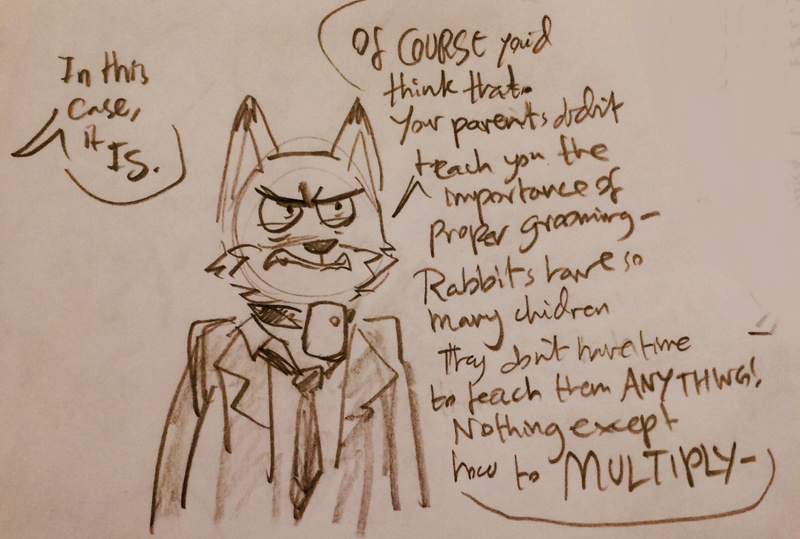 In this
case,
it
IS.
OF COURSE you'd
think that.
Your parents didn't
teach you the
importance of
proper grooming—
Rabbits have so
many children
They don't have time
to teach them ANYTHING!
Nothing except
how to MULTIPLY—